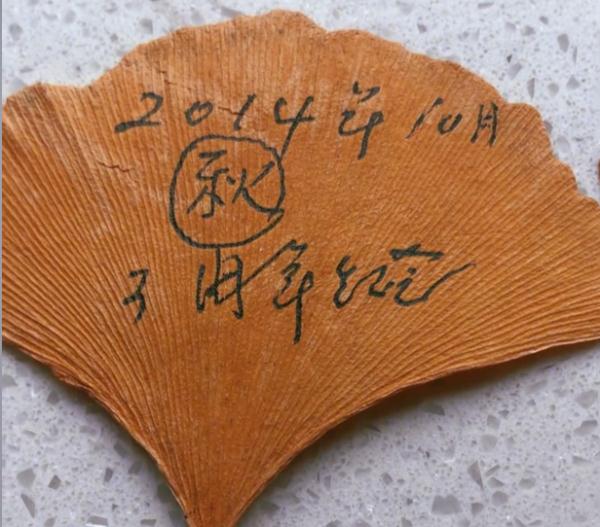 2014年10月
秋
3周年纪念